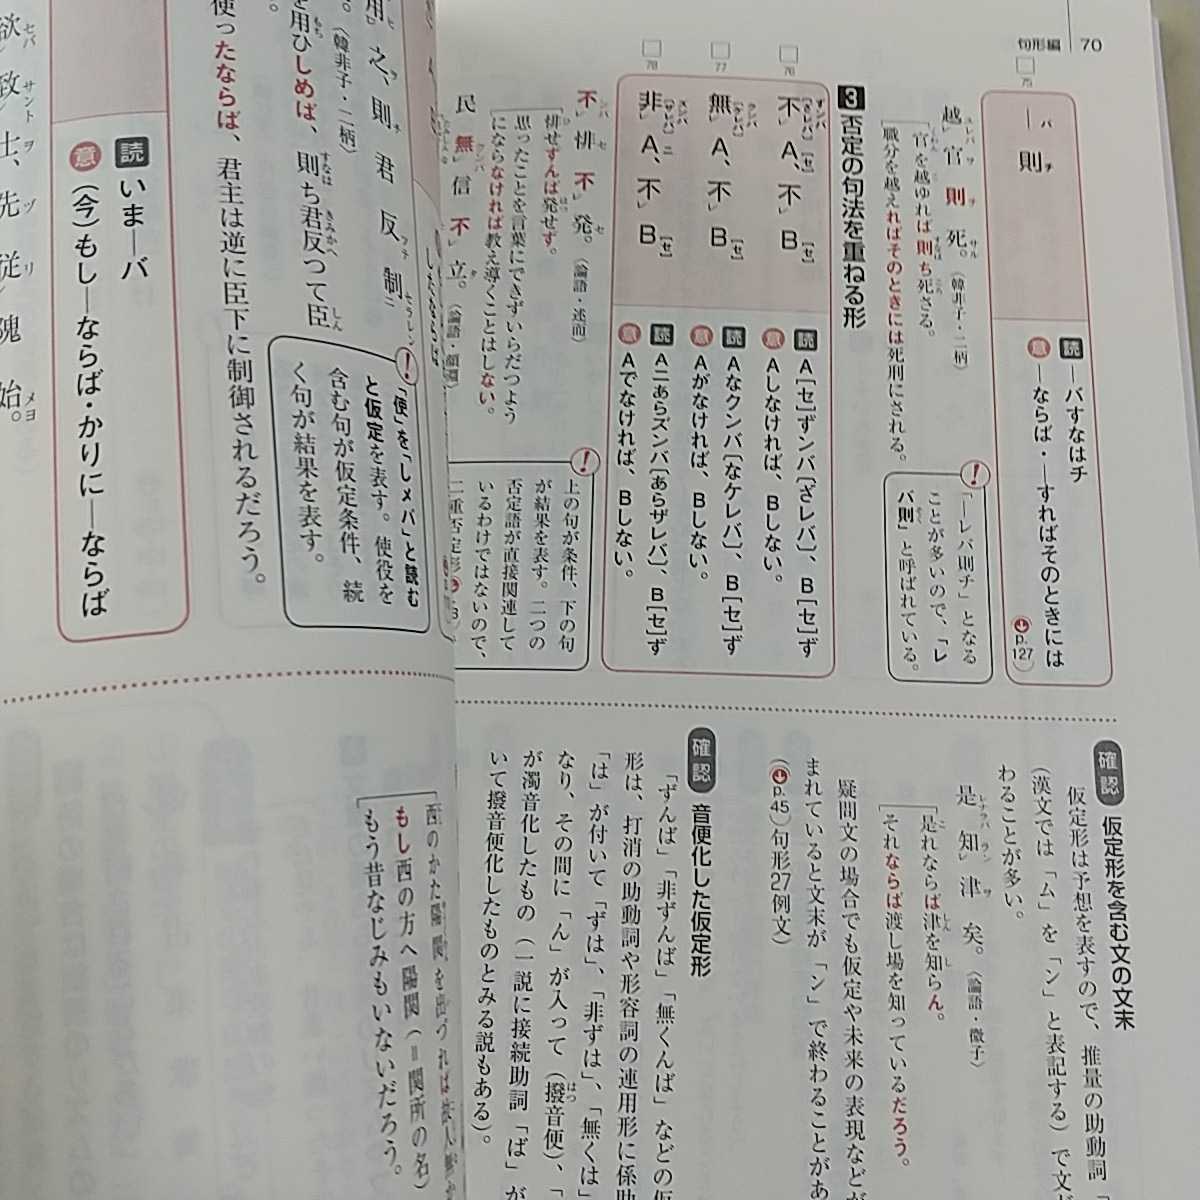 句形編 70
75
―バ則チ
読 ―バすなはチ
意 ―ならば・―すればそのときには
(p.127)
越官則死。(韓非子・二柄)
官を越ゆれば則ち死さる。
職分を越えればそのときには死刑にされる。
「―レバ則チ」となる
ことが多いので、「レ
バ則」と呼ばれている。
3 否定の句法を重ねる形
76
不A、不B[セ]
読 A[セ]ずンバ[ざレバ]、B[セ]ず
意 Aしなければ、Bしない。
77
無A、不B[セ]
読 Aなクンバ[なケレバ]、B[セ]ず
意 Aがなければ、Bしない。
78
非A、不B[セ]
読 Aニあらズンバ[あらザレバ]、B[セ]ず
意 Aでなければ、Bしない。
不悱不発。(論語・述而)
悱せずんば発せず。
思ったことを言葉にできずいらだつよう
にならなければ教え導くことはしない。
民無信不立。(論語・顔淵)
上の句が条件、下の句
が結果を表す。二つの
否定語が直接関連して
いるわけではないので、
確認 仮定形を含む文の文末
仮定形は予想を表すので、推量の助動詞
(漢文では「ム」を「ン」と表記する)で文が
わることが多い。
是知津矣。(論語・微子)
是れならば津を知らん。
それならば渡し場を知っているだろう。
疑問文の場合でも仮定や未来の表現などが
まれていると文末が「ン」で終わることがあ
(p.45)句形27例文)
確認 音便化した仮定形
「ずんば」「非ずんば」「無くんば」などの仮
形は、打消の助動詞や形容詞の連用形に係助
「は」が付いて「ずは」、「非ずは」、「無くは」
なり、その間に「ん」が入って(撥音便)、「
が濁音化したもの(一説に接続助詞「ば」が
いて撥音便化したものとみる説もある)。
用之、則君反制
(韓非子・二柄)
を用ひしめば、則ち君反つて臣
使ったならば、君主は逆に臣下に制御されるだろう。
「使」を「しメバ」と読む
と仮定を表す。使役を
含む句が仮定条件、続
く句が結果を表す。
読 いま―バ
意 (今)もし―ならば・かりに―ならば
欲致士、先従隗始。
もし西の方へ陽関(=関所の名)
もう昔なじみもいないだろう。